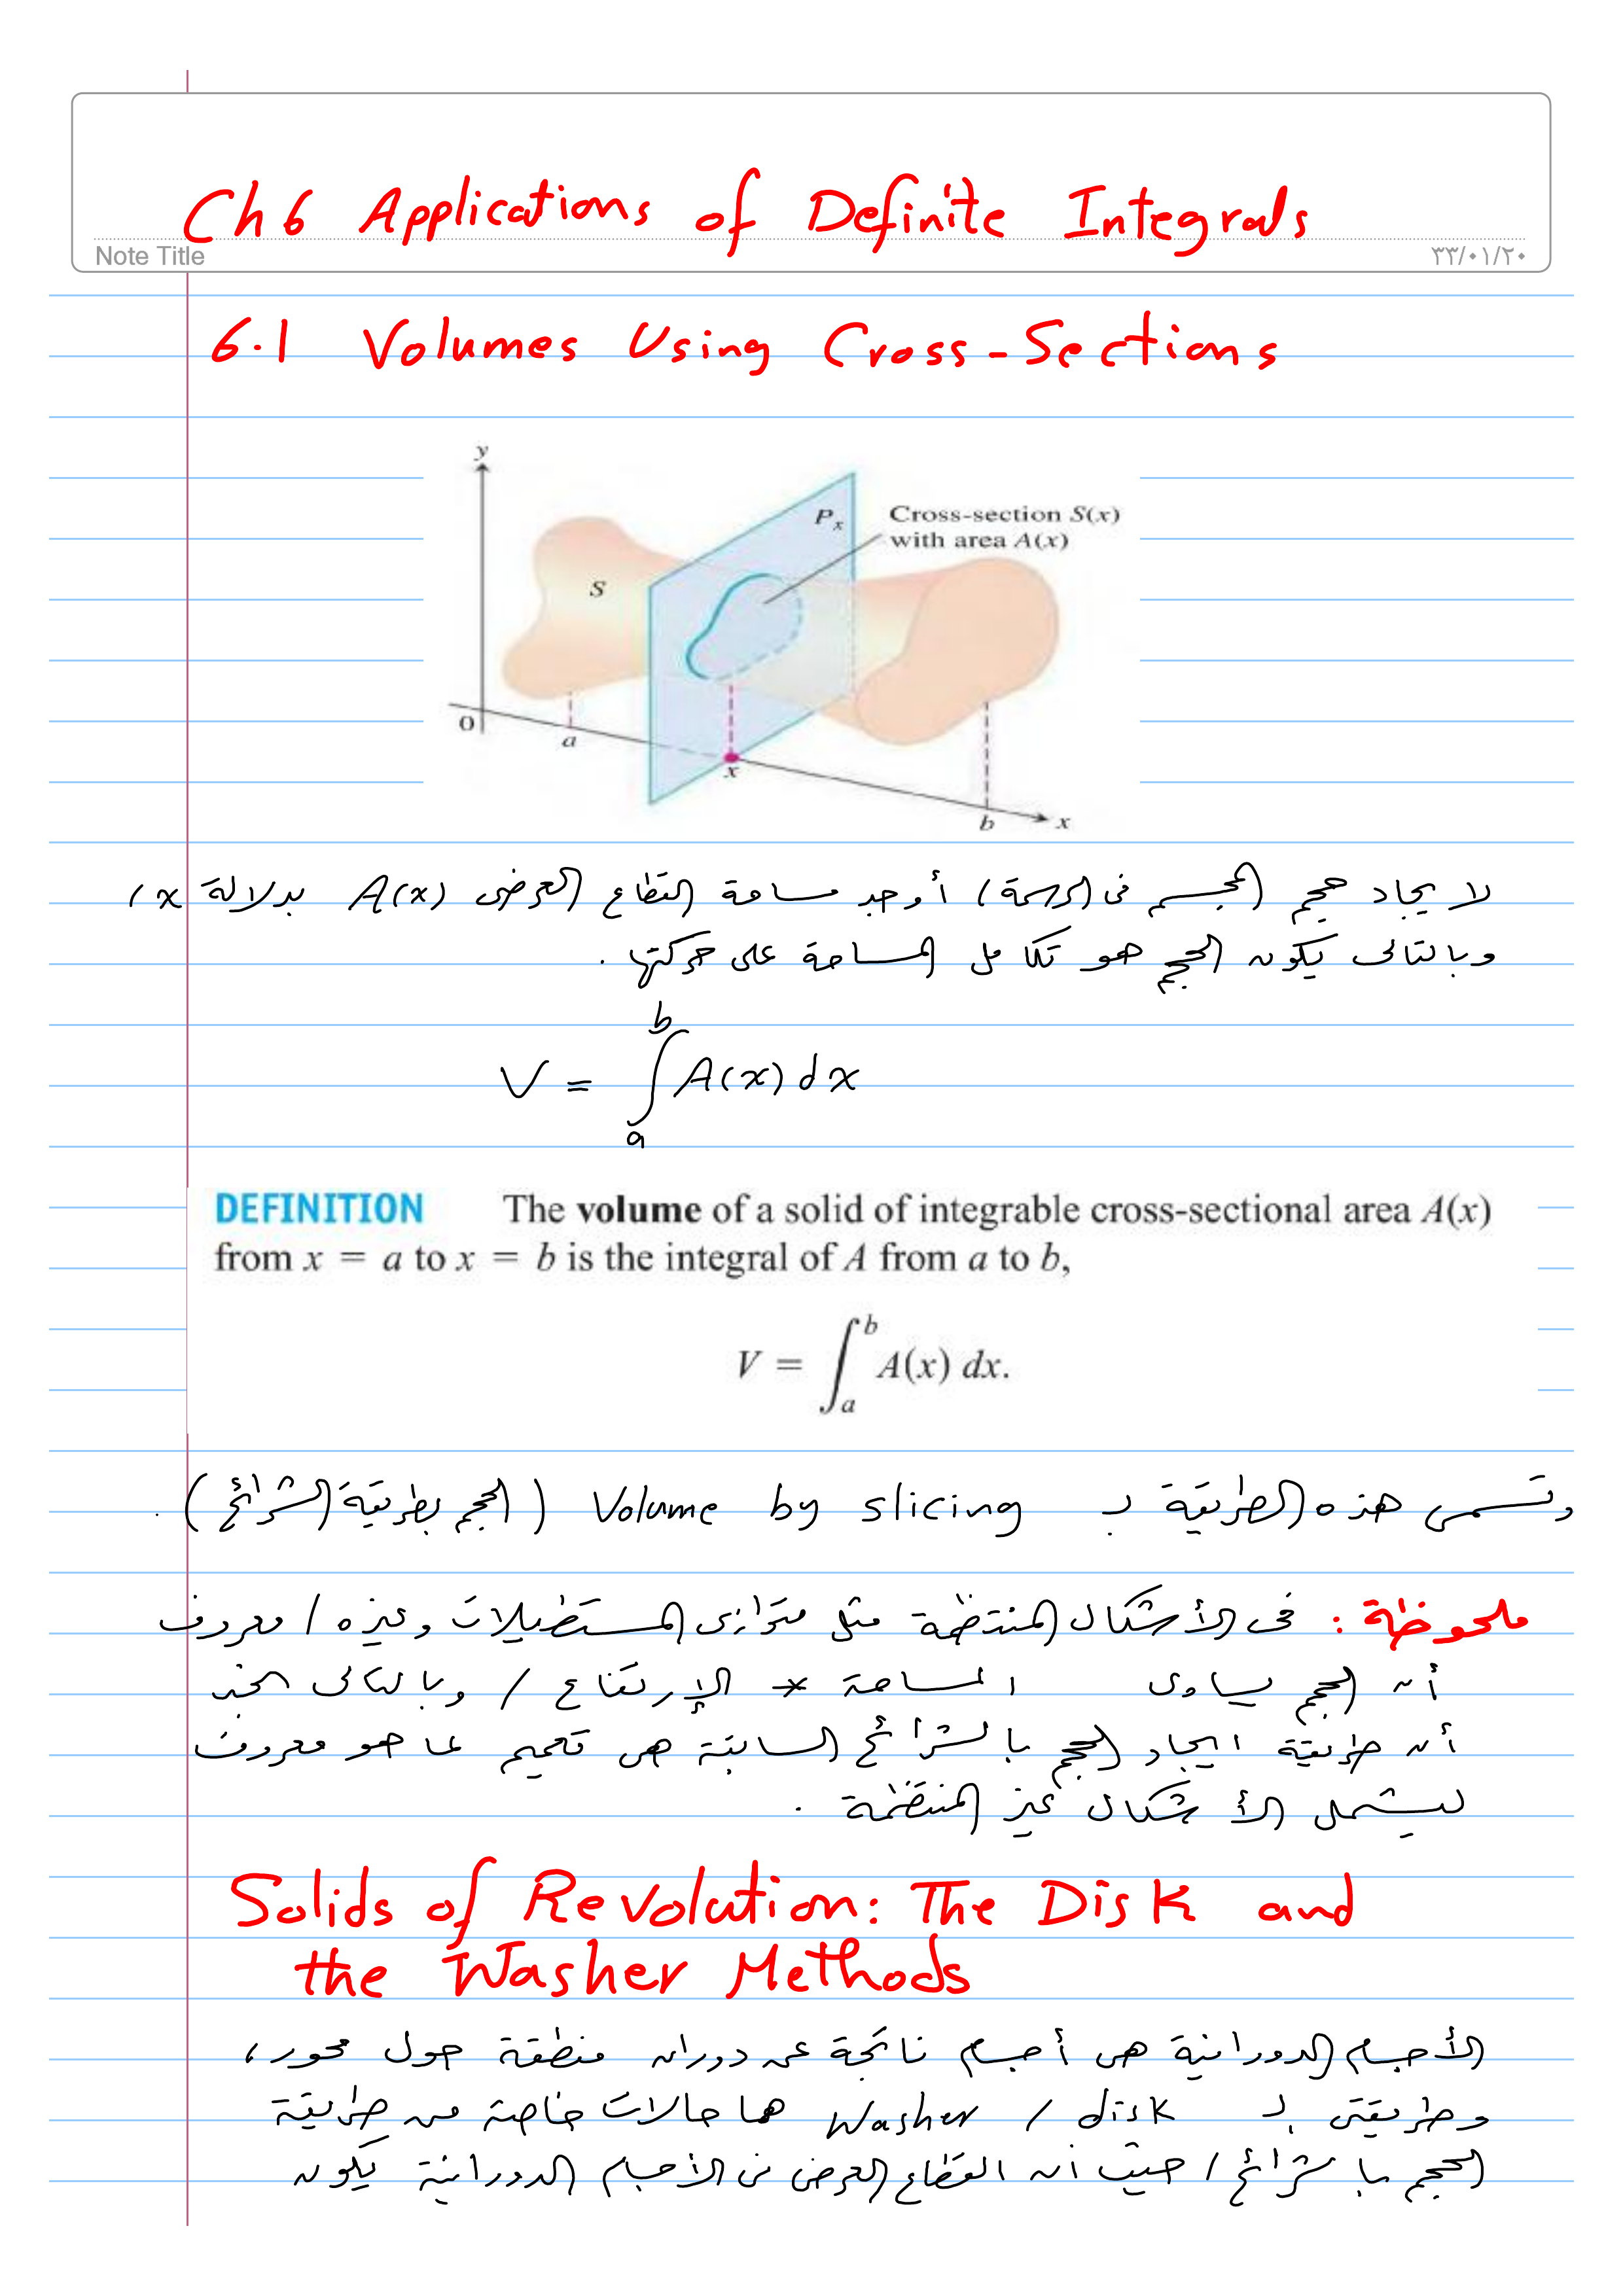 Ch 6 Applications of Definite Integrals
Note Title
٣٣/٠١/٢٠
6.1 Volumes Using Cross-Sections
y
P_x
Cross-section S(x)
with area A(x)
S
0
a
x
b
x
لايجاد حجم المجسم في الرسمة) أوجد مساحة القطاع العرضى A(x) بدلالة x،
وبالتالى يكون الحجم هو تكامل المساحة على حركتها .
V = ∫_a^b A(x) dx
DEFINITION The volume of a solid of integrable cross-sectional area A(x)
from x = a to x = b is the integral of A from a to b,
V = ∫_a^b A(x) dx.
وتسمى هذه الطريقة بـ Volume by slicing (الحجم بطريقة الشرائح) .
ملحوظة : فى الأشكال المنتظمة مثل متوازى المستطيلات وغيره / معروف
أن الحجم يساوى المساحة * الإرتفاع / وبالتالى نجد
أن طريقة ايجاد الحجم بالشرائح السابقة هى تعميم لما هو معروف
ليشمل الأشكال غير المنتظمة .
Solids of Revolution: The Disk and
the Washer Methods
الأجسام الدورانية هى أجسام ناتجة عن دوران منطقة حول محور،
وطريقتى الـ disk / Washer هما حالات خاصة من طريقة
الحجم بالشرائح / حيث أن القطاع العرضى فى الأجسام الدورانية يكون